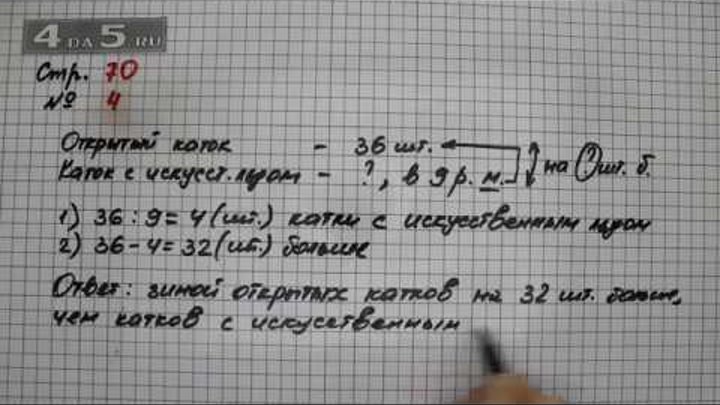 4 DA 5.RU
Стр. 70
№ 4
Открытый каток - 36 шт.
Каток с искусст. льдом - ?, в 9 р. м. на ? шт. б.
1) 36 : 9 = 4 (шт.) катки с искусственным льдом
2) 36 - 4 = 32 (шт.) больше
Ответ: зимой открытых катков на 32 шт. больше,
чем катков с искусственным